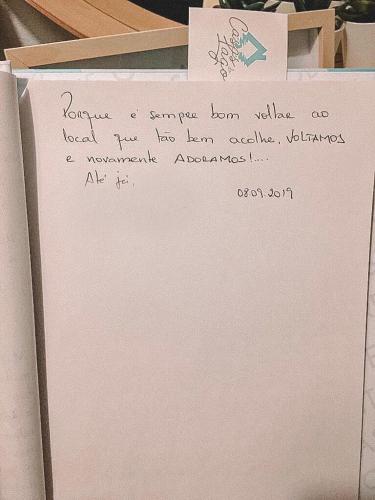 Casas
do
Lago
Porque é sempre bom voltar ao
local que tão bem acolhe, VOLTAMOS
e novamente ADORAMOS!....
Até já,
08.09.2019